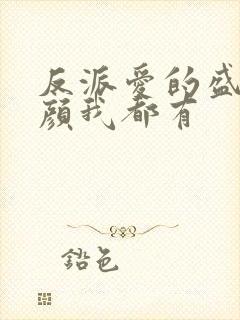 反派愛的盛
顏我都有
鉛色